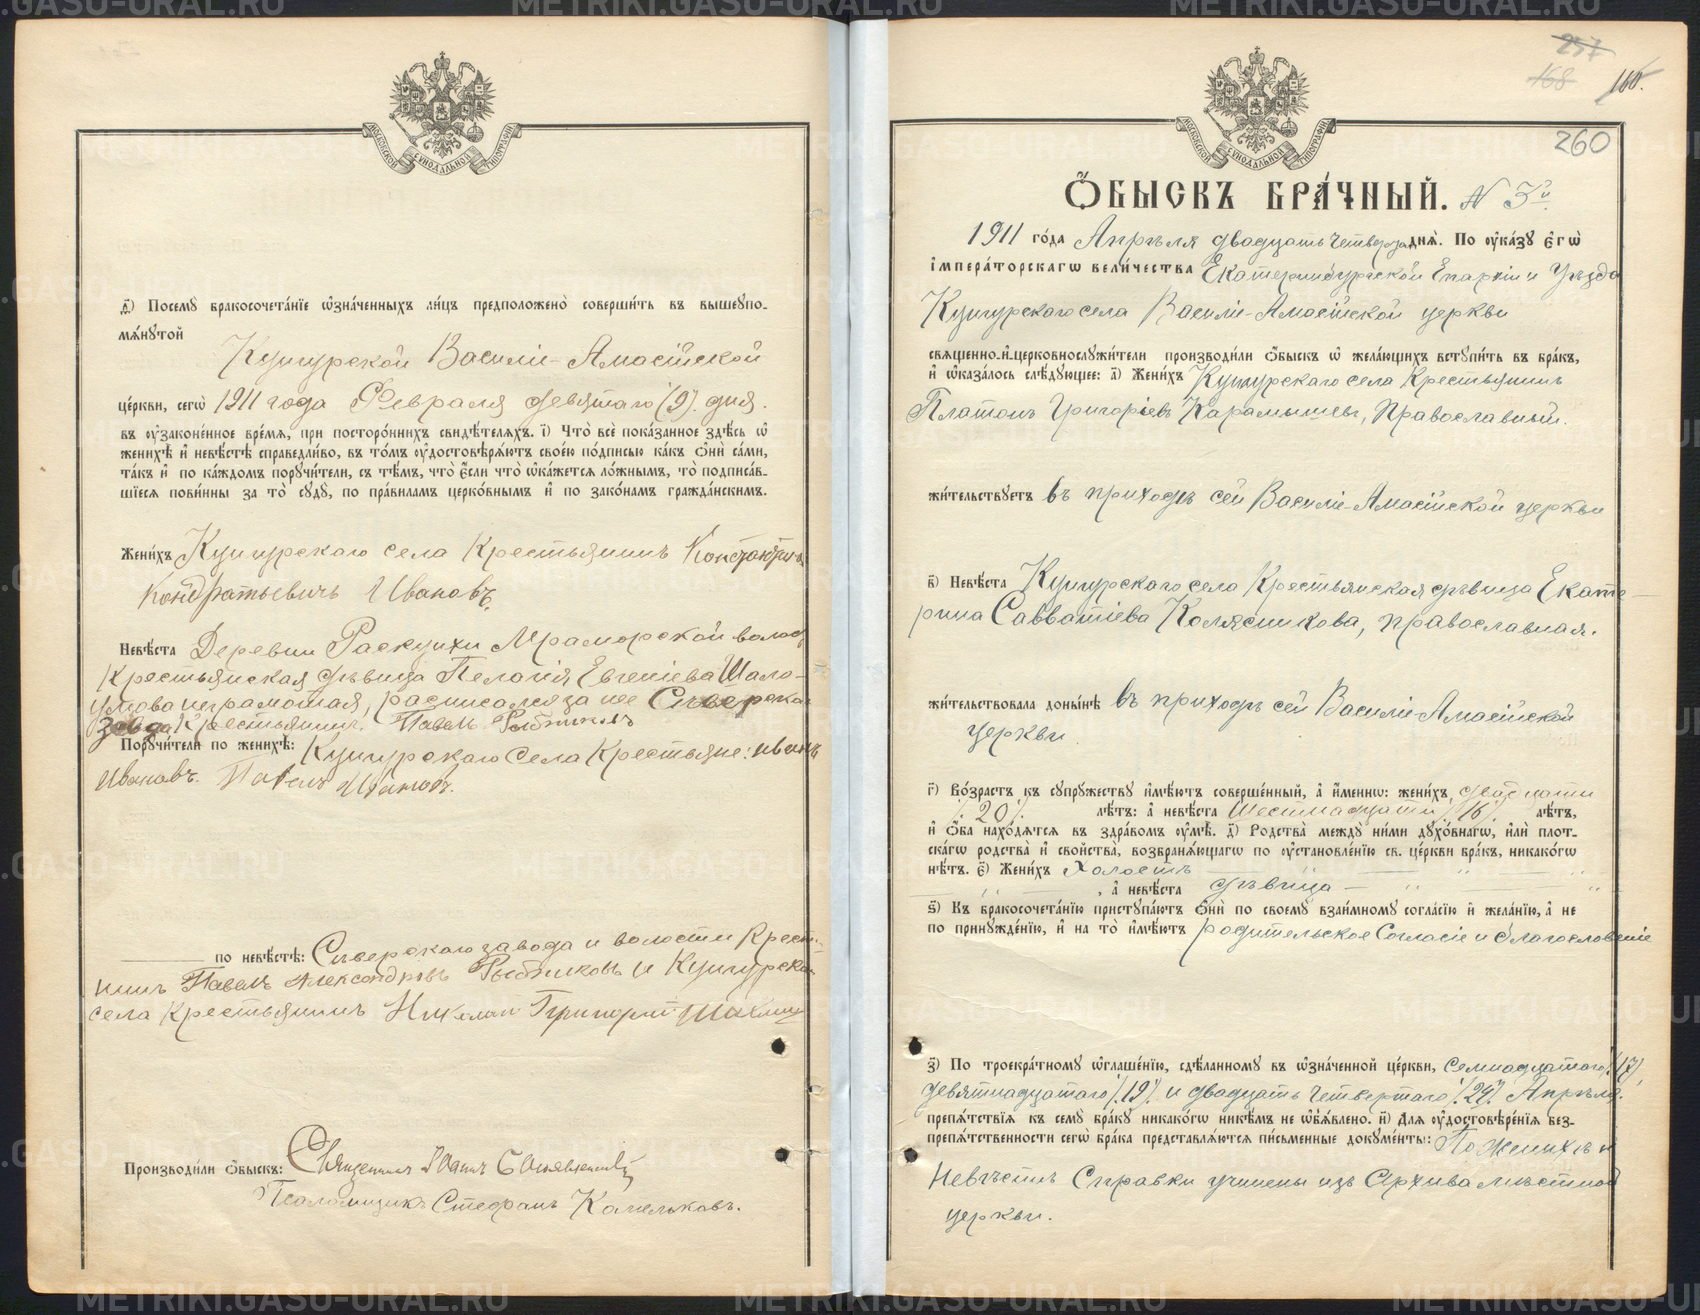 д҃) Посему бракосочета́нїе ѡзна́ченныхъ ли́цъ предположено̀ соверши́ть въ вышеупо-
мѧ́нутой
Кунгурской Василіе-Амасійской
це́ркви, сегѡ̀ 1911 года Февраля девятаго (9). дня.
въ ᲂу҆зако́ненное вре́мѧ, при посторо́ннихъ свидѣ́телѧхъ. і҃) Что̀ всѐ пока́занное здѣ́сь ѡ҆
женихѣ̀ и҆ невѣ́стѣ справедли́во, въ то́мъ ᲂу҆достовѣрѧ́ютъ свое́ю по́дписью ка́къ ѻ҆нѝ са́ми,
та́къ и҆ по ка́ждомъ поручи́тели, съ тѣ́мъ, что̀ є҆́сли что̀ ѡ҆ка́жетсѧ ло́жнымъ, то̀ подписа́в-
шїесѧ пови́нны за то̀ суду̀, по пра́виламъ церко́внымъ и҆ по зако́намъ гражда́нскимъ.
Жени́хъ Кунгурскаго села Крестьянинъ Константинъ
Кондратьевичъ Ивановъ.
Невѣ́ста Деревни Раскуихи Мраморской волос
Крестьянская дѣвица Пелагія Евгеніева Шало-
умова неграмотная, расписался за нее Сѣверскаго
завода Крестьянинъ. Павелъ Рыбниковъ
Поручи́тели по женихѣ̀: Кунгурскаго Села Крестьяне: иванъ
Ивановъ. Павелъ Ивановъ.
по невѣ́стѣ: Сѣверскаго завода и волости Крестья-
нинъ Павелъ Александровъ Рыбниковъ и Кунгурскаго
села Крестьянинъ Николай Григорій
Производи́ли ѻ҆́быскъ: Священникъ
Псаломщикъ Стефанъ Камельковъ.
МОСКОВСКОЙ СѴНОДАЛЬНОЙ ТИПОГРАФІИ
257
168
160.
260
МОСКОВСКОЙ СѴНОДАЛЬНОЙ ТИПОГРАФІИ
Ѻ҆́БЫСКЪ БРА́ЧНЫЙ. N 3й.
1911 го́да Апрѣля двадцать четверта днѧ̀. По ᲂу҆ка́зу є҆гѡ̀
і҆мпера́торскагѡ вели́чества Екатеринбургской Епархіи и Уѣзда
Кунгурскаго села Василіе-Амасійской церкви
свѧщенно-и҆-церковнослужи́тели производи́ли ѻ҆́быскъ ѡ҆ жела́ющихъ вступи́ть въ бра́къ,
и҆ ѡ҆каза́лось слѣ́дующее: а҃) Жени́хъ Кунгурскаго села Крестьянинъ
Платонъ Григоріевъ Карамышевъ, Православный.
жи́тельствуетъ въ приходѣ сей Василіе-Амасійской церкви
в҃) Невѣ́ста Кунгурскаго села Крестьянская дѣвица Екате-
рина Савватіева Колясникова, православная.
жи́тельствовала доны́нѣ въ приходѣ сей Василіе-Амасійской
церкви
г҃) Во́зрастъ къ супру́жеству и҆мѣ́ютъ соверше́нный, а҆ и҆́менно: жени́хъ двадцати
/.20/. лѣ́тъ: а҆ невѣ́ста Шестнадцати /.16/. лѣ́тъ,
и҆ ѻ҆́ба нахо́дѧтсѧ въ здра́вомъ ᲂу҆мѣ̀. д҃) Родства̀ между ни́ми духо́внагѡ, и҆лѝ плот-
ска́гѡ родства̀ и҆ сво́йства, возбранѧ́ющагѡ по ᲂу҆становле́нїю св. це́ркви бра́къ, никако́гѡ
нѣ́тъ. є҃) Жени́хъ Холостъ — " — "
— " —, а҆ невѣ́ста дѣвица — " — "
ѕ҃) Къ бракосочета́нїю приступа́ютъ ѻ҆нѝ по своему̀ взаи́мному согла́сїю и҆ жела́нїю, а҆ не
по принужде́нїю, и҆ на то̀ и҆мѣ́ютъ родительское Согласіе и благословеніе
з҃) По троекра́тному ѡ҆глаше́нїю, сдѣ́ланному въ ѡ҆зна́ченной це́ркви, Семнадцатаго /.17/,
девятнадцатаго /.19/. и двадцать четвертаго /.24/. Апрѣля.
препѧ́тствїѧ къ сему̀ бра́ку никако́гѡ никѣ́мъ не ѡ҆бъѧ́влено. и҃) Длѧ ᲂу҆достовѣре́нїѧ без-
препѧ́тственности сегѡ̀ бра́ка представлѧ́ютсѧ пи́сьменные докуме́нты: По Женихѣ и
Невѣстѣ Справки учинены изъ Архива мѣстной
церкви.
METRIKI.GASU-URAL.RU